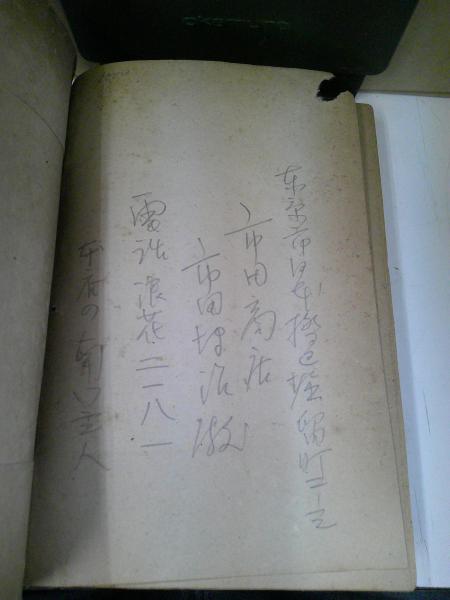 東京市日本橋区堀留町二ノ三
市田商店
市田
電話浪花二一八一
本店の 主人
okamura